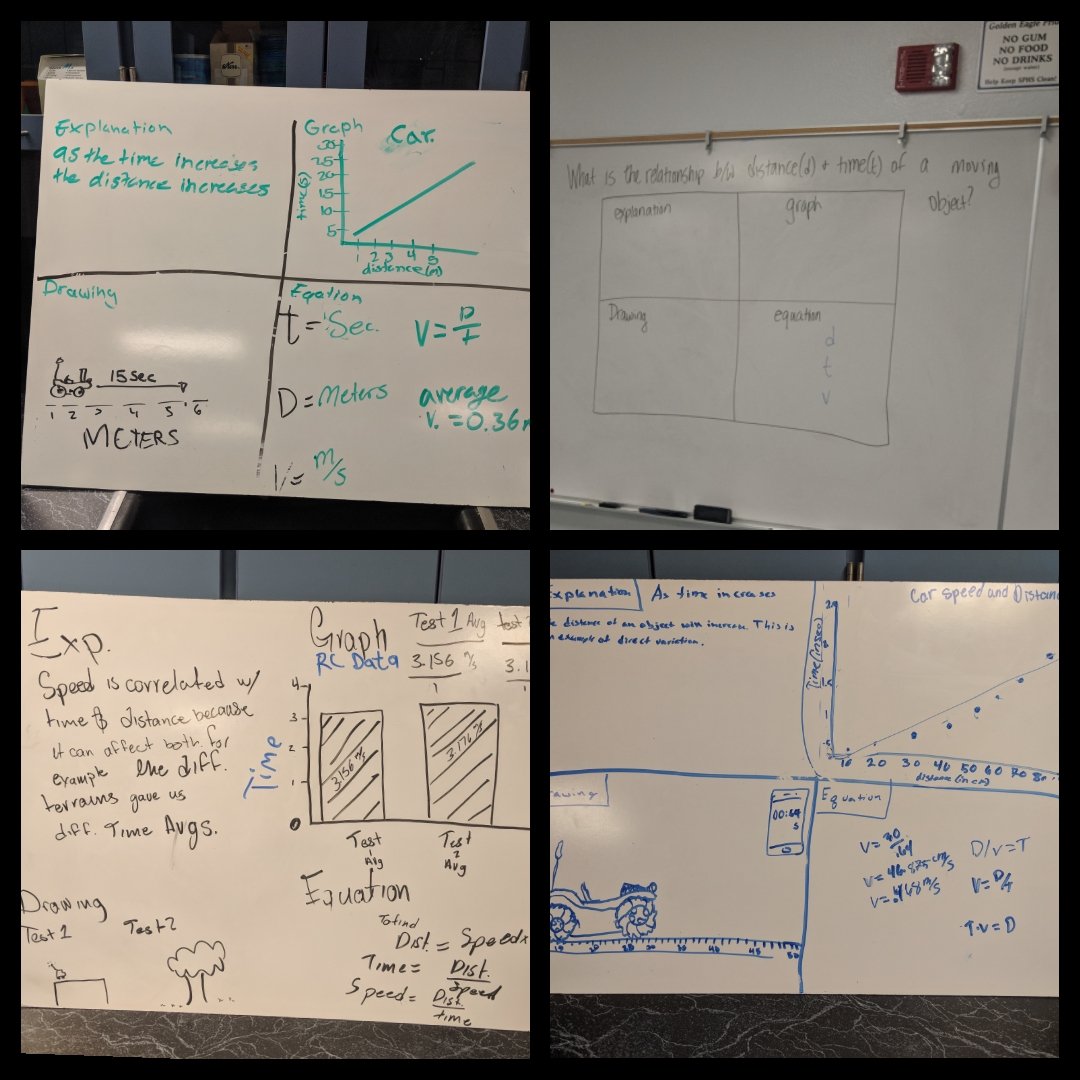 Explanation
as the time increases
the distance increases
Graph
Car.
30
25
20
15
10
5
time(s)
1 2 3 4 5
distance(m)
Drawing
15sec
1 2 3 4 5 6
METERS
Eqation
t = Sec.
V = D/t
D = Meters
average
v. = 0.36
V = m/s
Golden Eagle
NO GUM
NO FOOD
NO DRINKS
(except water)
Help Keep SPHS Clean!
What is the relationship b/w distance(d) + time(t) of a moving
object?
explanation
graph
Drawing
equation
d
t
v
Exp.
Speed is correlated w/
time & distance because
it can affect both. for
example the diff.
terrains gave us
diff. Time Avgs.
Graph
RC Data
Test 1 Avg
3.156 m/s
1
test
3.1
1
4
3
2
1
0
Time
3.156 m/s
3.176 m/s
Test 1 Avg
Test 2 Avg
Drawing
Test 1
Test 2
Equation
To find
Dist. = Speed x
Time = Dist./Speed
Speed = Dist./time
Explanation
As time increases
distance of an object will increase. This is
example of direct variation.
Car Speed and Distan
Time(in sec)
10 20 30 40 50 60 70 80
distance (in cm)
awing
00:64
s
10 20 30 40 45 50
Equation
V = 30/.64
V = 46.875 cm/s
V = .468 m/s
D/V = T
V = D/t
T·V = D